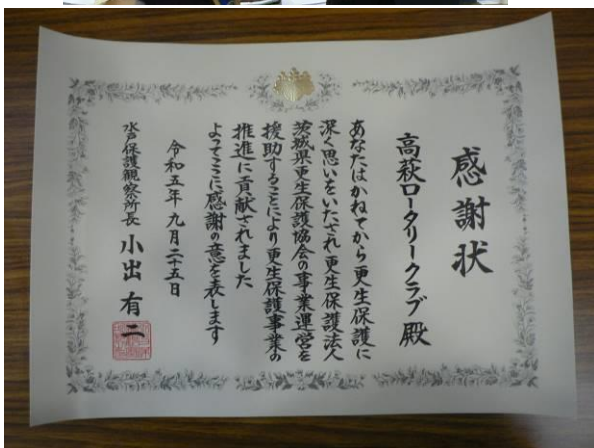 感謝状
高萩ロータリークラブ 殿
あなたはかねてから更生保護に
深く思いをいたされ更生保護法人
茨城県更生保護協会の事業運営を
援助することにより更生保護事業の
推進に貢献されました
よってここに感謝の意を表します
令和五年 九月二十五日
水戸保護観察所長 小出 有二